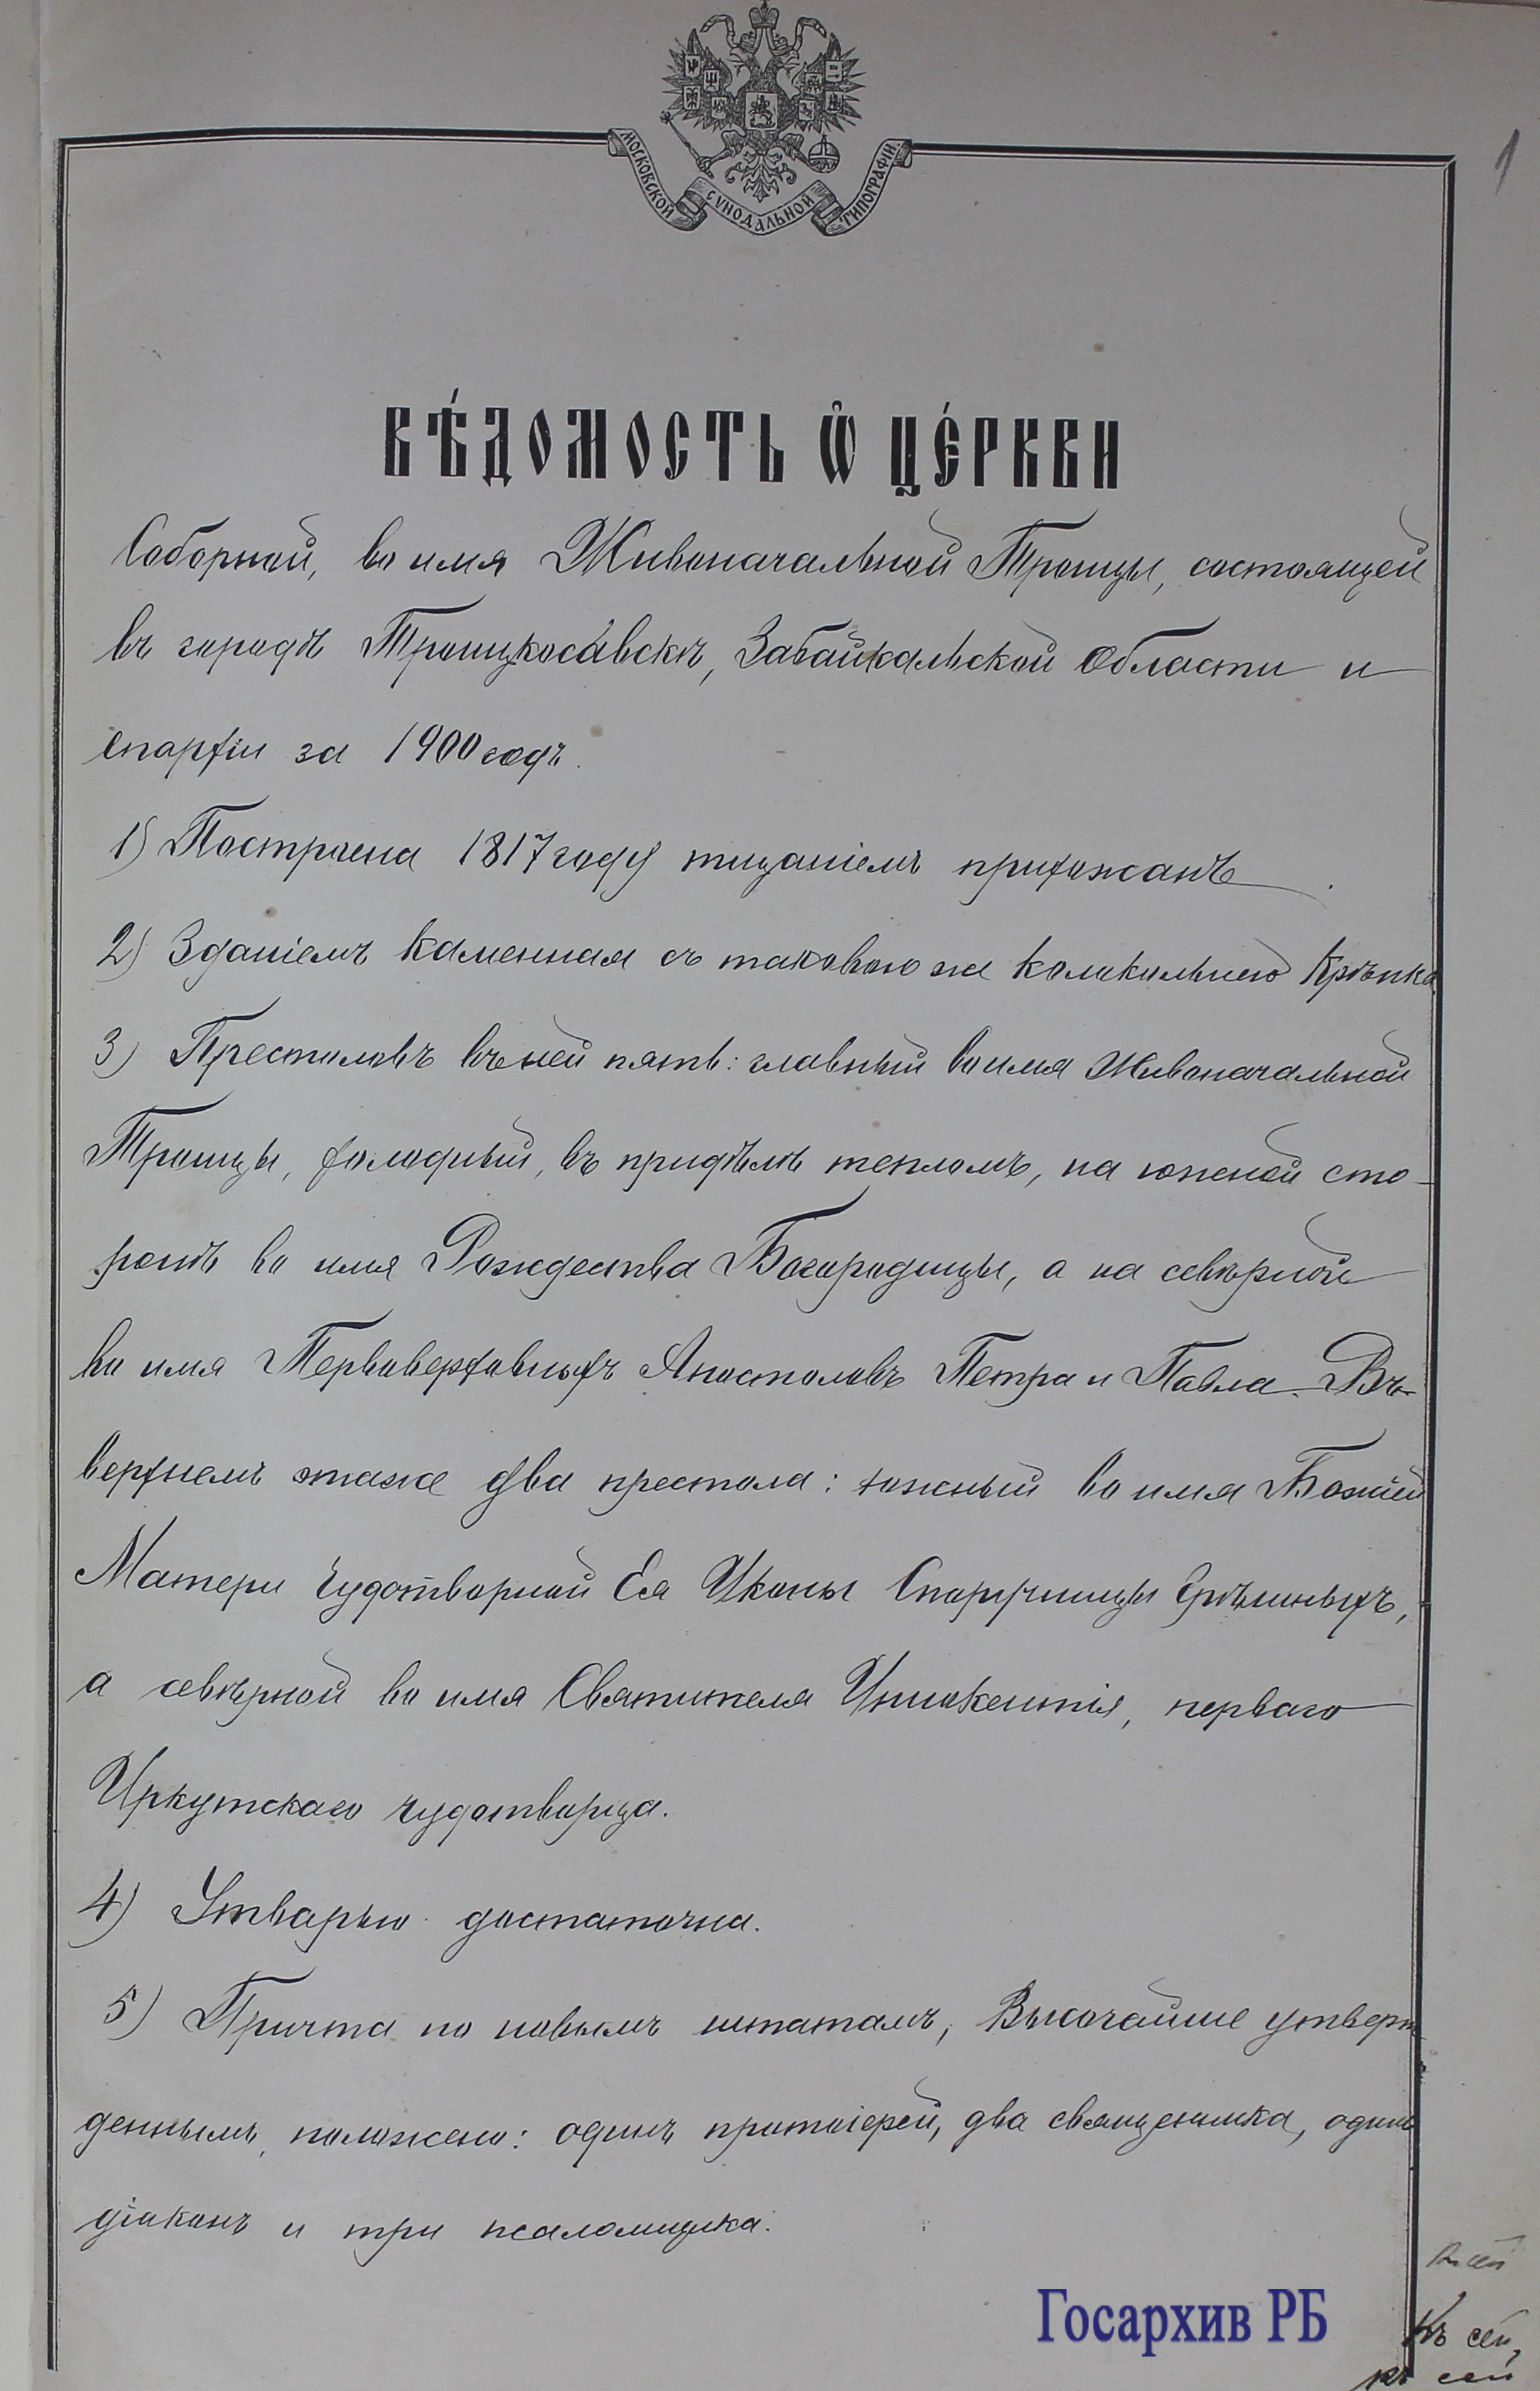 1
МОСКОВСКОЙ СѴНОДАЛЬНОЙ ТИПОГРАФІИ
ВѢ́ДОМОСТЬ Ѽ ЦЕ́РКВИ
Соборной, во имя Живоначальной Троицы, состоящей
въ городѣ Троицкосавскѣ, Забайкальской Области и
Епархіи за 1900 годъ.
1) Построена 1817 году тщаніемъ прихожанъ
2) Зданіемъ каменная съ таковою же колокольнею крѣпка.
3) Престоловъ въ ней пять: главный во имя Живоначальной
Троицы, холодный, въ придѣлѣ тепломъ, на южной сто-
ронѣ во имя Рождества Богородицы, а на сѣверной
во имя Первоверховныхъ Апостоловъ Петра и Павла. Въ
верхнемъ этаже два престола: южный во имя Божіей
Матери Чудотворной Ея Иконы Споручницы Грѣшныхъ,
а сѣверной во имя Святителя Иннокентія, перваго
Иркутскаго чудотворца.
4) Утварью достаточна.
5) Причта по новымъ штатамъ, Высочайше утверж
деннымъ, положено: одинъ протоіерей, два священника, одинъ
діаконъ и три псаломщика.
Къ сей
къ сей
Госархив РБ